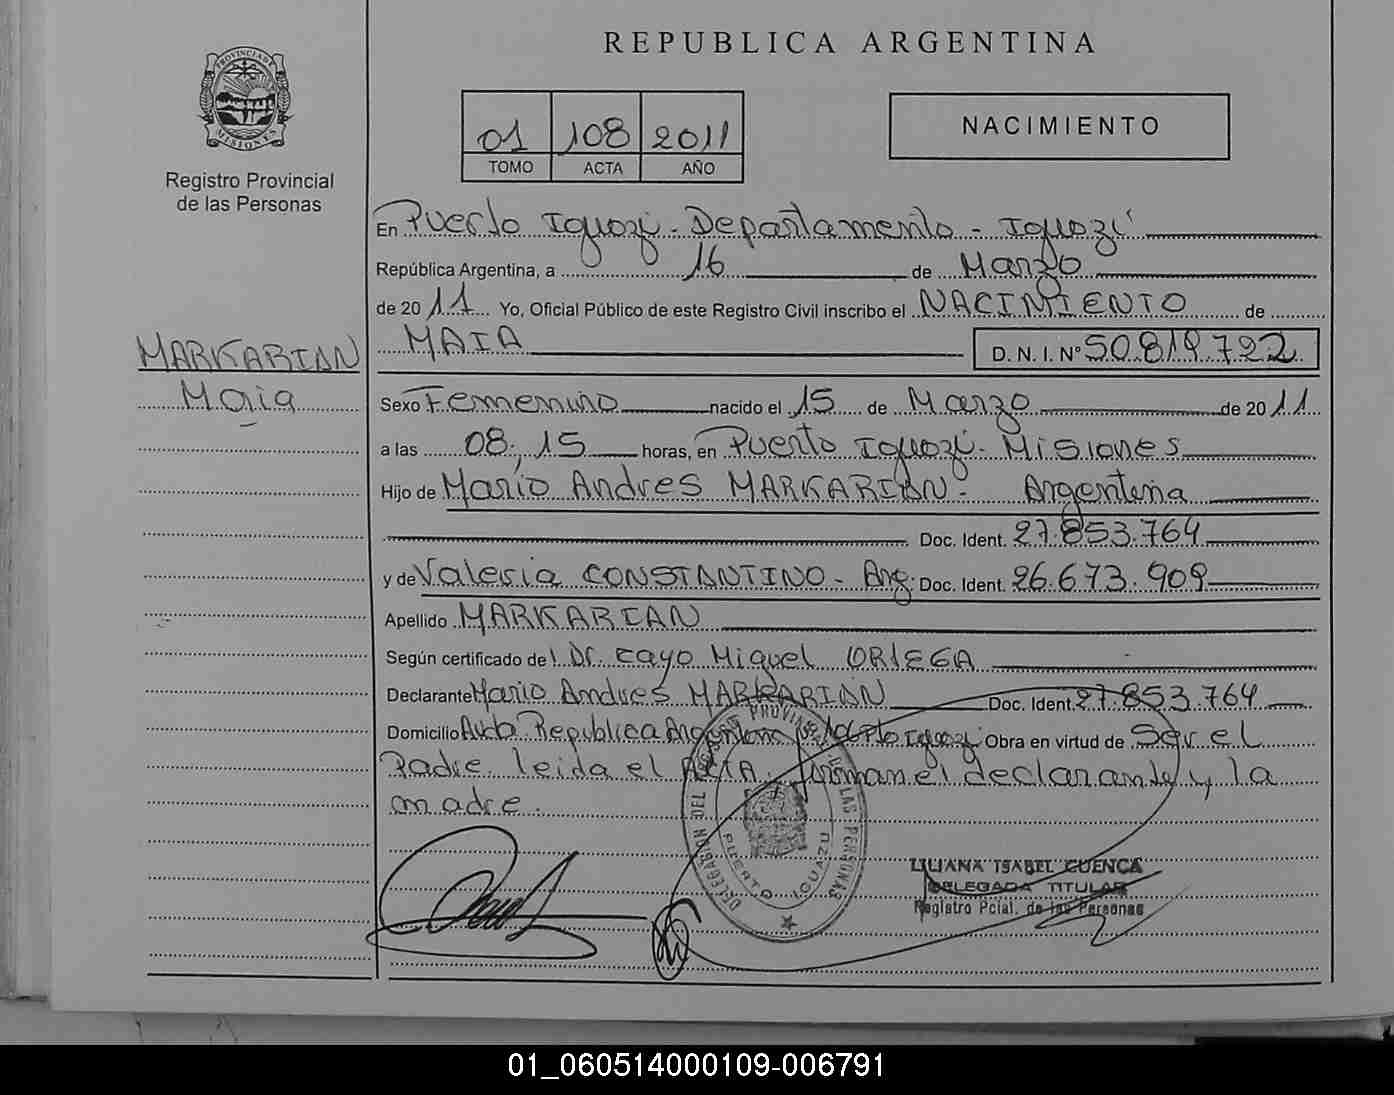 REPUBLICA ARGENTINA
PROVINCIA DE MISIONES
Registro Provincial
de las Personas
01 108 2011
TOMO ACTA AÑO
NACIMIENTO
En Puerto Iguazú - Departamento - Iguazú
República Argentina, a 16 de Marzo
de 2011 Yo, Oficial Público de este Registro Civil inscribo el NACIMIENTO de
MAIA D. N. I. Nº 50.819.722
MARKARIAN
Maia
Sexo Femenino nacido el 15 de Marzo de 2011
a las 08:15 horas, en Puerto Iguazú - Misiones
Hijo de Mario Andres MARKARIAN - Argentina
Doc. Ident. 27.853.764
y de Valeria CONSTANTINO - Arg. Doc. Ident. 26.673.909
Apellido MARKARIAN
Según certificado del Dr. Cayo Miguel ORTEGA
Declarante Mario Andres MARKARIAN Doc. Ident. 27.853.764
Domicilio Avda. Republica Argentina Pto Iguazú Obra en virtud de Ser el
Padre leida el ACTA, firman el declarante y la
madre.
DELEGACION DEL REGISTRO PROVINCIAL DE LAS PERSONAS
PUERTO IGUAZU
LILIANA ISABEL CUENCA
DELEGADA TITULAR
Registro Pcial. de las Personas
01_060514000109-006791